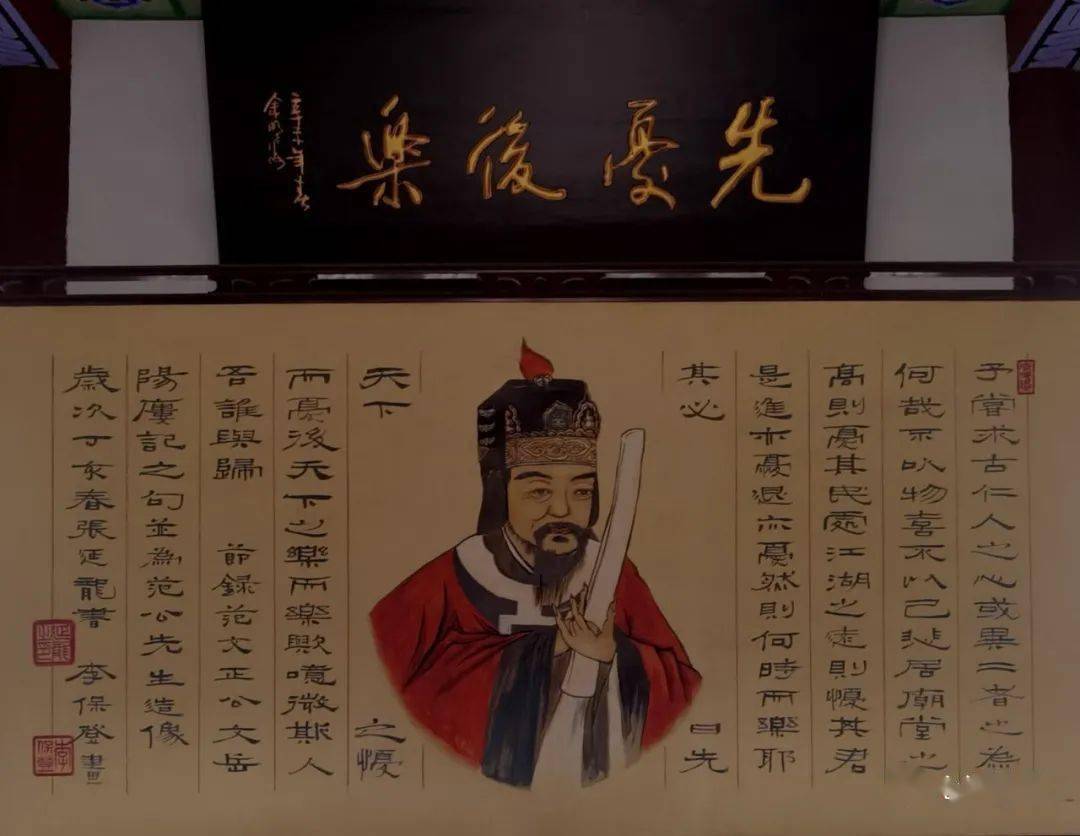 先憂後樂
予嘗求古仁人之心或異二者之為
何哉不以物喜不以己悲居廟堂之
高則憂其民處江湖之遠則懮其君
是進亦憂退亦憂然則何時而樂耶
其必曰先
天下之懮
而憂後天下之樂而樂歟噫微斯人
吾誰與歸 節録范文正公文岳
陽廔記之句並為范公先生造像
歲次丁亥春張延龍書 李保登畫